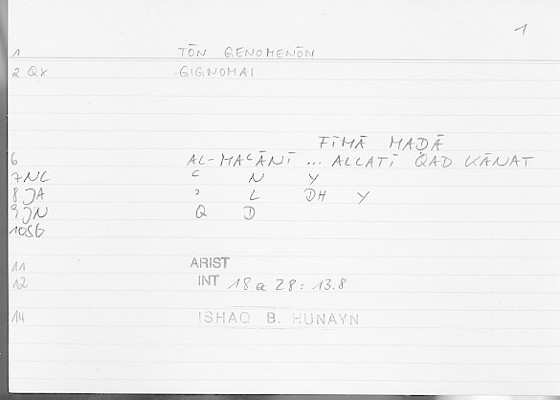 1
1 TŌN GENOMENŌN
2 QX GIGNOMAI
FĪMĀ MAḌĀ
6 AL-MAʿĀNĪ ... ALLATĪ QAD KĀNAT
7 NL ʿ N Y
8 JA ʾ L DH Y
9 JN Q D
10 SG
11 ARIST
12 INT 18 a 28 : 13.8
14 ISHAQ B. HUNAYN